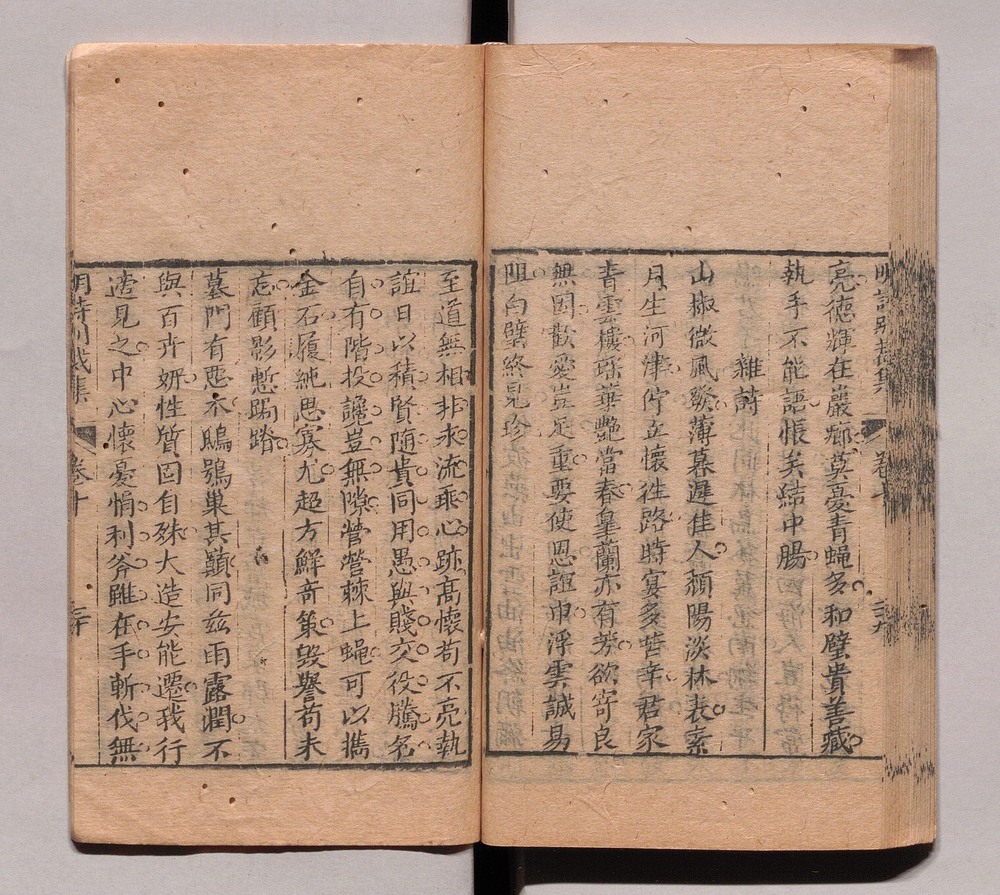 亮德輝在巖廊莫憂青蠅多和璧貴善藏
執手不能語悵矣結中腸
雜詩
山椒微風發薄暮遲佳人頹陽淡林表素
月生河津佇立懷往路時宴多苦辛君家
青雲樓瑤華艷當春皋蘭亦有芳欲寄良
無因歡愛豈足重要使恩誼申浮雲誠易
阻白璧終見珍
至道無相非末流乖心跡高懷苟不亮執
誼日以積賢隨貴同用愚與賤交役騰名
自有階投讒豈無隙營營棘上蠅可以攜
金石履純思寡尤超方鮮奇策毀譽苟未
忘顧影慙跼蹐
墓門有惡木鴟鴞巢其巔同茲雨露潤不
與百卉妍性質固自殊大造安能遷我行
適見之中心懷憂悁利斧雖在手斬伐無
明詩別裁集
卷十
三十